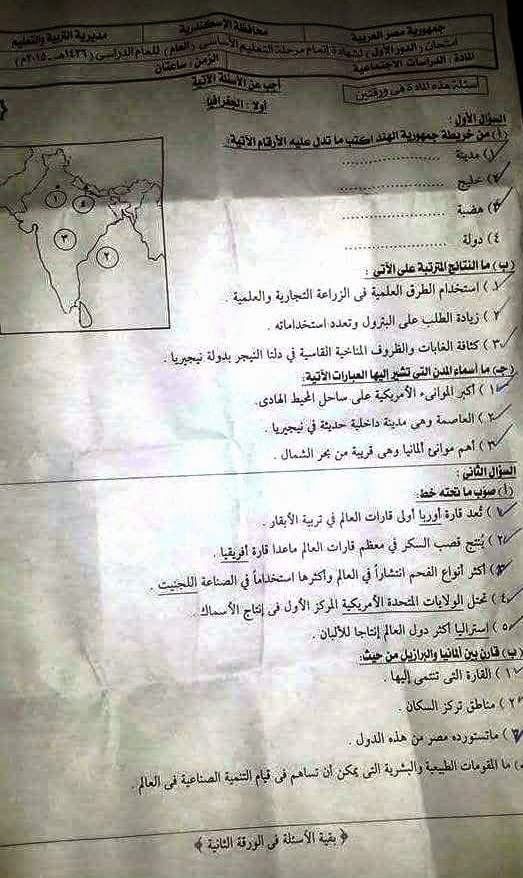 جمهورية مصر العربية
محافظة الإسكندرية
مديرية التربية والتعليم
امتحان (الدور الأول) لشهادة إتمام مرحلة التعليم الأساسى (العام) للعام الدراسى (١٤٣٦هـ - ٢٠١٥م)
المادة : الدراسات الاجتماعية
الزمن : ساعتان
أسئلة هذه المادة فى ورقتين
أجب عن الأسئلة الآتية
أولا : الجغرافيا
السؤال الأول :
(أ) من خريطة جمهورية الهند اكتب ما تدل عليه الأرقام الآتية:
١) مدينة ....................
٢) خليج ....................
٣) هضبة ....................
٤) دولة ....................
١
٤
٣
٢
(ب) ما النتائج المترتبة على الآتى :
١) استخدام الطرق العلمية فى الزراعة التجارية والعلمية .
٢) زيادة الطلب على البترول وتعدد استخداماته .
٣) كثافة الغابات والظروف المناخية القاسية في دلتا النيجر بدولة نيجيريا .
(جـ) ما أسماء المدن التى تشير إليها العبارات الآتية:
١) أكبر الموانىء الأمريكية على ساحل المحيط الهادى.
٢) العاصمة وهى مدينة داخلية حديثة في نيجيريا .
٣) أهم موانئ ألمانيا وهى قريبة من بحر الشمال .
السؤال الثانى :
(أ) صوب ما تحته خط:
١) تُعد قارة أوربا أولى قارات العالم في تربية الأبقار .
٢) يُنتج قصب السكر في معظم قارات العالم ماعدا قارة أفريقيا .
٣) أكثر أنواع الفحم انتشاراً في العالم وأكثرها استخداماً في الصناعة اللجنيت .
٤) تحتل الولايات المتحدة الأمريكية المركز الأول فى إنتاج الأسماك .
٥) استراليا أكثر دول العالم إنتاجا للألبان .
(ب) قارن بين ألمانيا والبرازيل من حيث:
١) القارة التى تنتمى إليها .
٢) مناطق تركز السكان .
٣) ماتستورده مصر من هذه الدول .
ما المقومات الطبيعية والبشرية التى يمكن أن تساهم فى قيام التنمية الصناعية فى العالم .
﴿ بقية الأسئلة فى الورقة الثانية ﴾